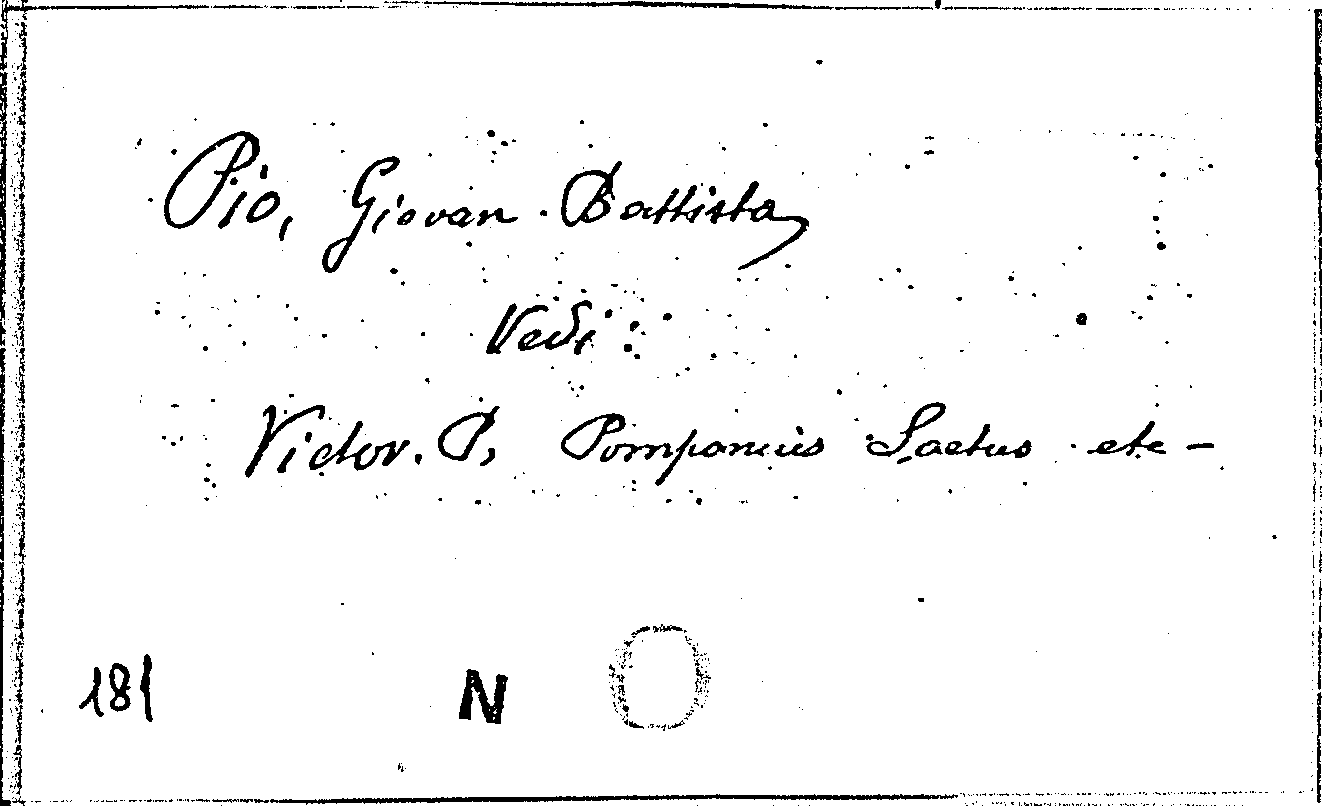 Pio, Giovan Battista
Vedi:
Victor. P, Pomponius Laetus etc -
181 N